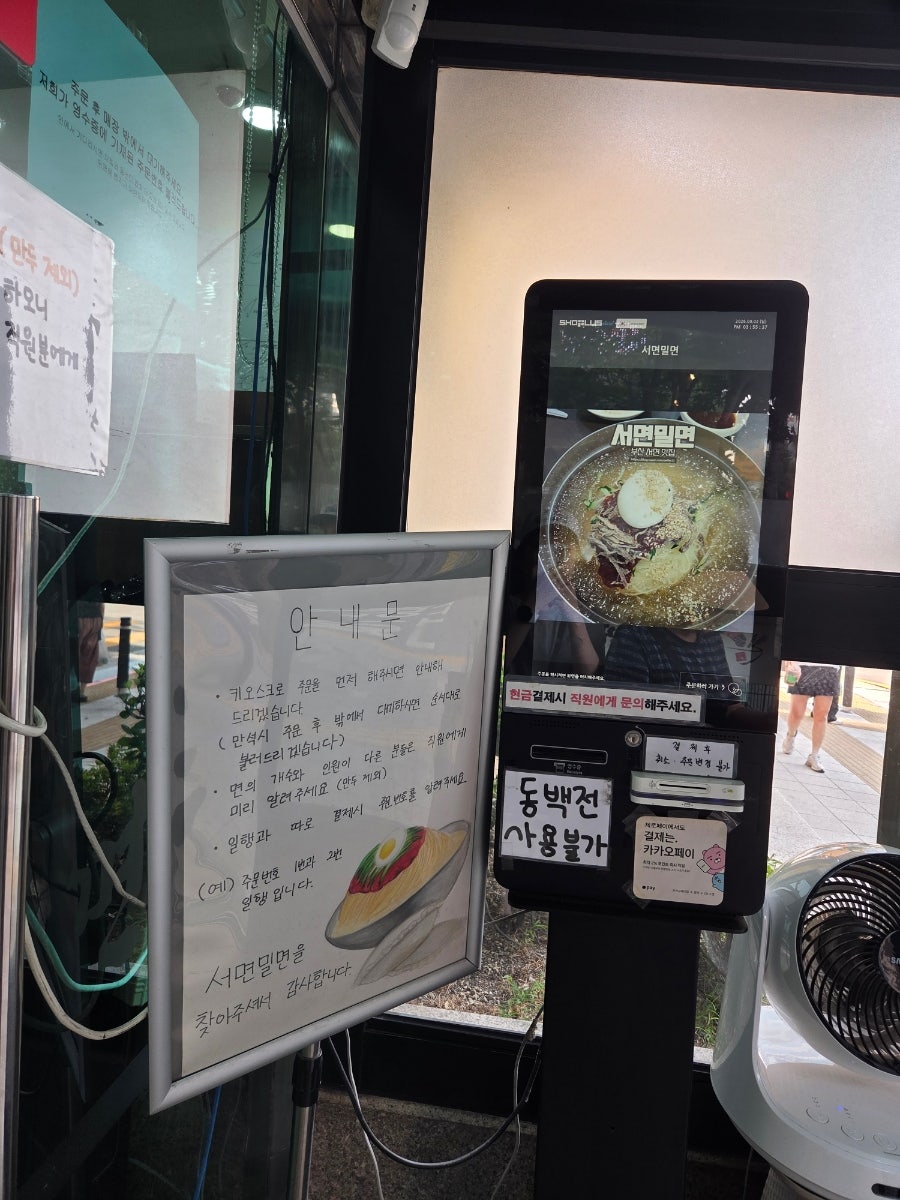 주문 후 매장 밖에서 대기해주세요.
저희가 영수증에 기재된 주문번호 불러드립니다
(만두 제외)
하오니
직원분에게
안내문
· 키오스크로 주문을 먼저 해주시면 안내해
드리겠습니다.
(만석시 주문 후 밖에서 대기하시면 순서대로
불러드리겠습니다)
· 면의 개수와 인원이 다른 분들은 직원에게
미리 알려주세요 (만두 제외)
· 일행과 따로 결제시 주문번호를 알려주세요.
(예) 주문번호 1번과 2번
일행 입니다.
서면밀면을
찾아주셔서 감사합니다.
서면밀면
서면밀면
부산 서면 맛집
주문하러 가기
현금결제시 직원에게 문의해주세요.
결제 후
취소·주문변경 불가
동백전
사용불가
결제는,
카카오페이